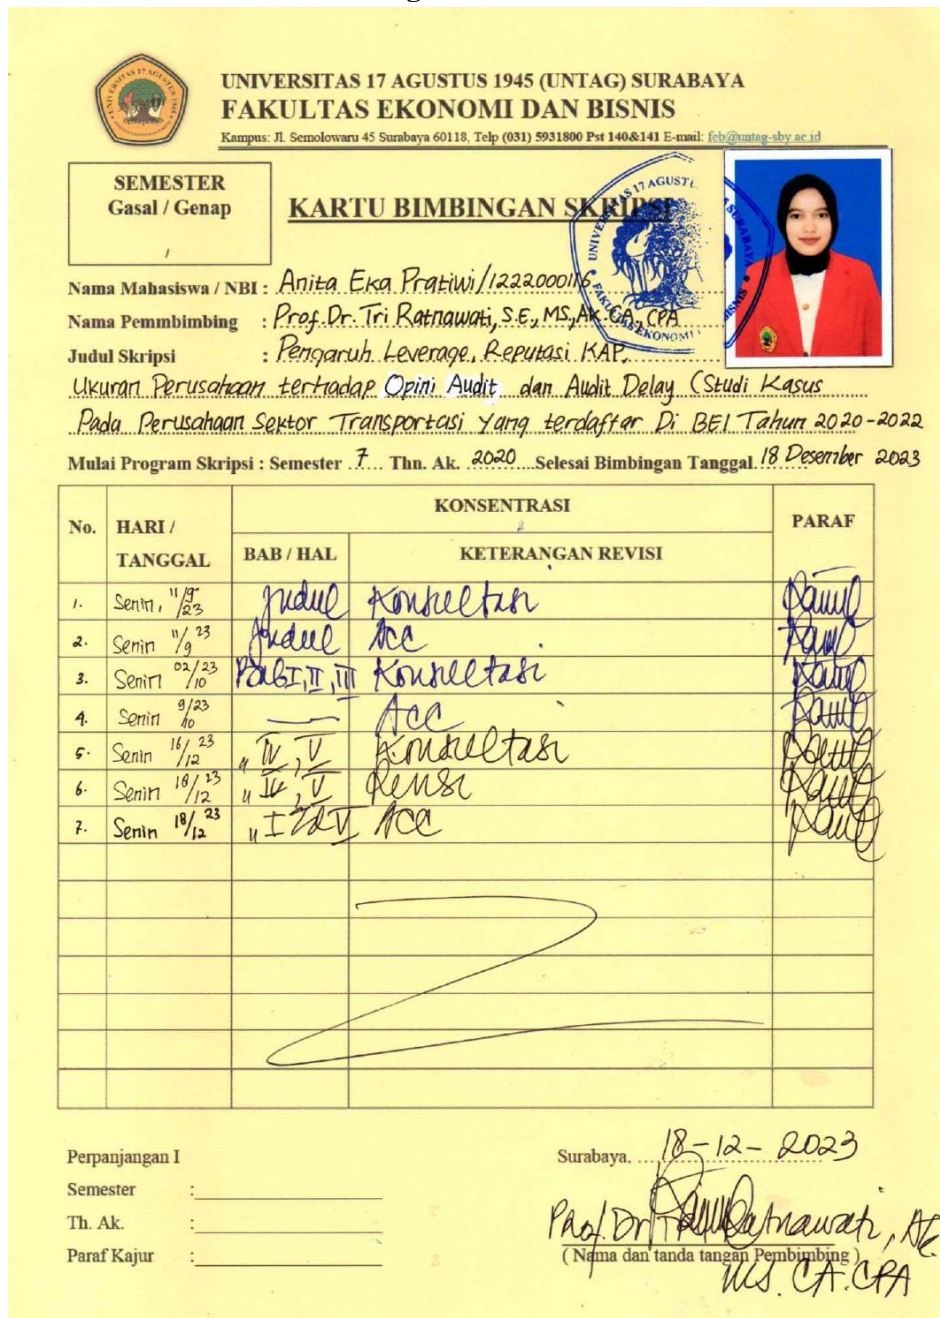 UNIVERSITAS 17 AGUSTUS 1945 (UNTAG) SURABAYA
FAKULTAS EKONOMI DAN BISNIS
Kampus: Jl. Semolowaru 45 Surabaya 60118, Telp (031) 5931800 Pst 140&141 E-mail: feb@untag-sby.ac.id
SEMESTER
Gasal / Genap
/
KARTU BIMBINGAN SKRIPSI
Nama Mahasiswa / NBI : Anita Eka Pratiwi/1222000116
Nama Pemmbimbing : Prof. Dr. Tri Ratnawati, S.E., MS, Ak. CA, CPA
Judul Skripsi : Pengaruh Leverage, Reputasi KAP,
Ukuran Perusahaan terhadap Opini Audit dan Audit Delay (Studi Kasus
Pada Perusahaan Sektor Transportasi yang terdaftar Di BEI Tahun 2020-2022
Mulai Program Skripsi : Semester 7 Thn. Ak. 2020 Selesai Bimbingan Tanggal 18 Desember 2023
No. HARI / TANGGAL KONSENTRASI PARAF
BAB / HAL KETERANGAN REVISI
1. Senin, 11/9-23 Judul Konsultasi
2. Senin 11/9 23 Judul Acc
3. Senin 02/10/23 Bab I, II, III Konsultasi
4. Senin 9/10/23 — Acc
5. Senin 16/12 23 " IV, V Konsultasi
6. Senin 18/12 23 " IV, V Revisi
7. Senin 18/12 23 " I V Acc
Perpanjangan I
Semester :
Th. Ak. :
Paraf Kajur :
Surabaya, 18-12-2023
Prof. Dr Tri Ratnawati, Ak.
( Nama dan tanda tangan Pembimbing )
MS. CA. CPA